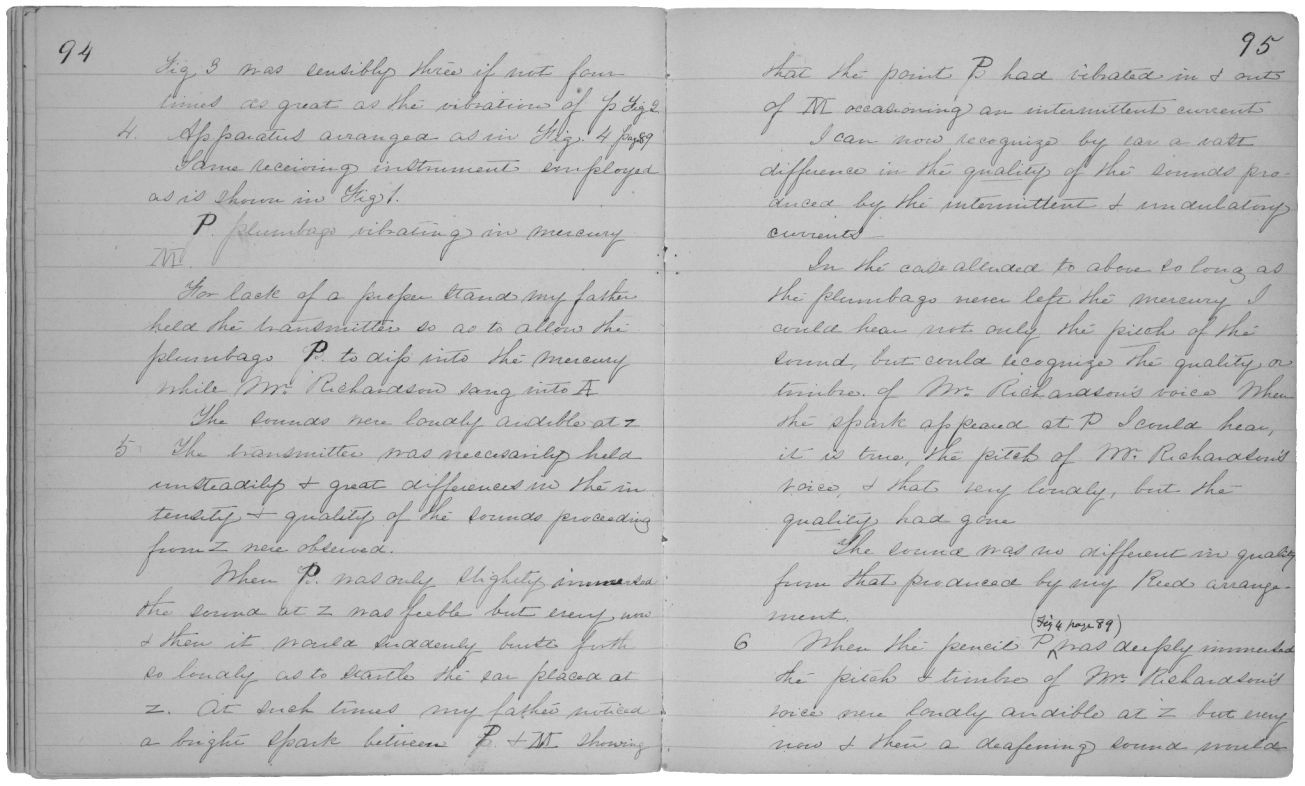 94
Fig 3 was sensibly three if not four
times as great as the vibration of p Fig 2
4. Apparatus arranged as in Fig. 4 page 89
Same receiving instrument employed
as is shown in Fig 1.
P. plumbago vibrating in mercury
M.
For lack of a proper stand my father
held the transmitter so as to allow the
plumbago P. to dip into the mercury
while Mr. Richardson sang into A
The sounds were loudly audible at Z
5 The transmitter was necessarily held
unsteadily & great differences in the in
tensity & quality of the sounds proceeding
from Z were observed.
When P. was only slightly immersed
the sound at Z was feeble but every now
& then it would suddenly burst forth
so loudly as to startle the ear placed at
Z. At such times my father noticed
a bright spark between P. & M showing
95
that the point P had vibrated in & out
of M occasioning an intermittent current
I can now recognize by ear a vast
difference in the quality of the sounds pro-
duced by the intermittent & undulatory
currents
In the case alluded to above so long as
the plumbago never left the mercury I
could hear not only the pitch of the
sound, but could recognize the quality or
timbre of Mr. Richardson's voice When
the spark appeared at P I could hear,
it is true, the pitch of Mr. Richardson's
voice, & that very loudly, but the
quality had gone
The sound was no different in quality
from that produced by my Reed arrange-
ment.
(Fig 4 page 89)
6 When the pencil P was deeply immersed
the pitch & timbre of Mr. Richardson's
voice were loudly audible at Z but every
now & then a deafening sound would